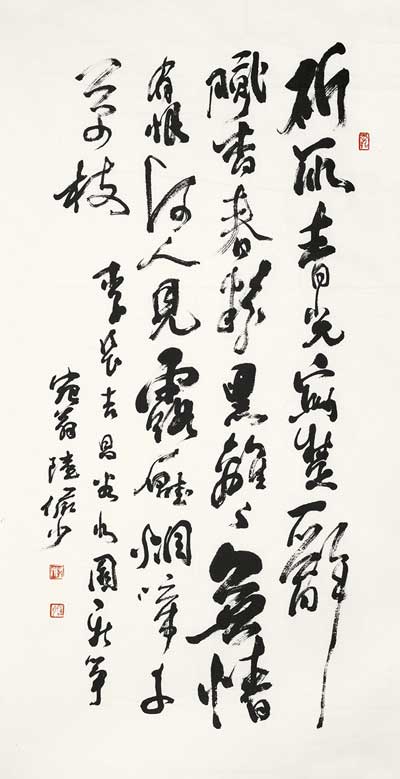 斫取青光寫楚辭
膩香春粉黑離々無情
有恨何人見露壓烟啼千
萬枝
李長吉昌谷北園新笋
宛翁陸儼少